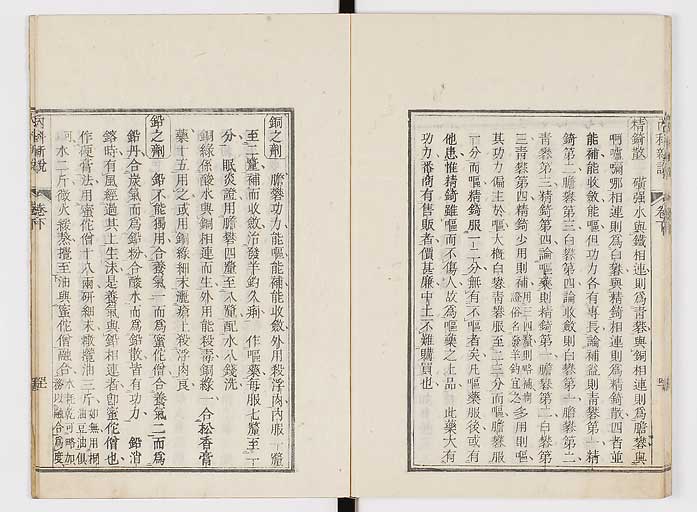 精錡散 磺强水與鐵相連則爲青礬與銅相連則爲膽礬與
啊嚧嚪哪相連則爲白礬與精錡相連則爲精錡散四者並
能補能收斂能嘔但功力各有專長論補益則青礬第一精
錡第二膽礬第三白礬第四論收斂則白礬第一膽礬第二
青礬第三精錡第四論嘔藥則精錡第一膽礬第二白礬第
三青礬第四精錡少用則補多用則嘔
其功力偏主於嘔大概白礬青礬服至二三分而嘔膽礬服
一分而嘔精錡服一二分無有不嘔者矣凡嘔藥服後或有
他患惟精錡雖嘔而不傷人故爲嘔藥之上品 此藥大有
功力番商有售販者價甚廉中土不難購買也
內科新說 卷下
銅之劑 膽礬功力能嘔能補能收斂外用殺浮肉內服一釐
至二釐補而收斂治發羊釣久痢 作嘔藥每服七釐至一
分 眠炎證用膽礬四釐至八釐配水八錢洗
銅綠係酸水與銅相連而生外用能殺毒銅綠一合松香膏
藥十五用之或用銅綠細末灑瘡上殺浮肉良
鉛之劑 鉛不能獨用合養氣一而爲蜜佗僧合養氣二而爲
鉛丹合炭氣而爲鉛粉合酸水而爲鉛散皆有功力 鉛消
鎔時有風經過其上生沫是養氣與鉛相連者卽蜜佗僧也
作硬膏法用蜜佗僧十八兩研細末橄欖油三斤如無用桐油豆油俱
可水二斤微火緩熬攪至油與蜜佗僧融合水耗乾可略加務以融合爲度